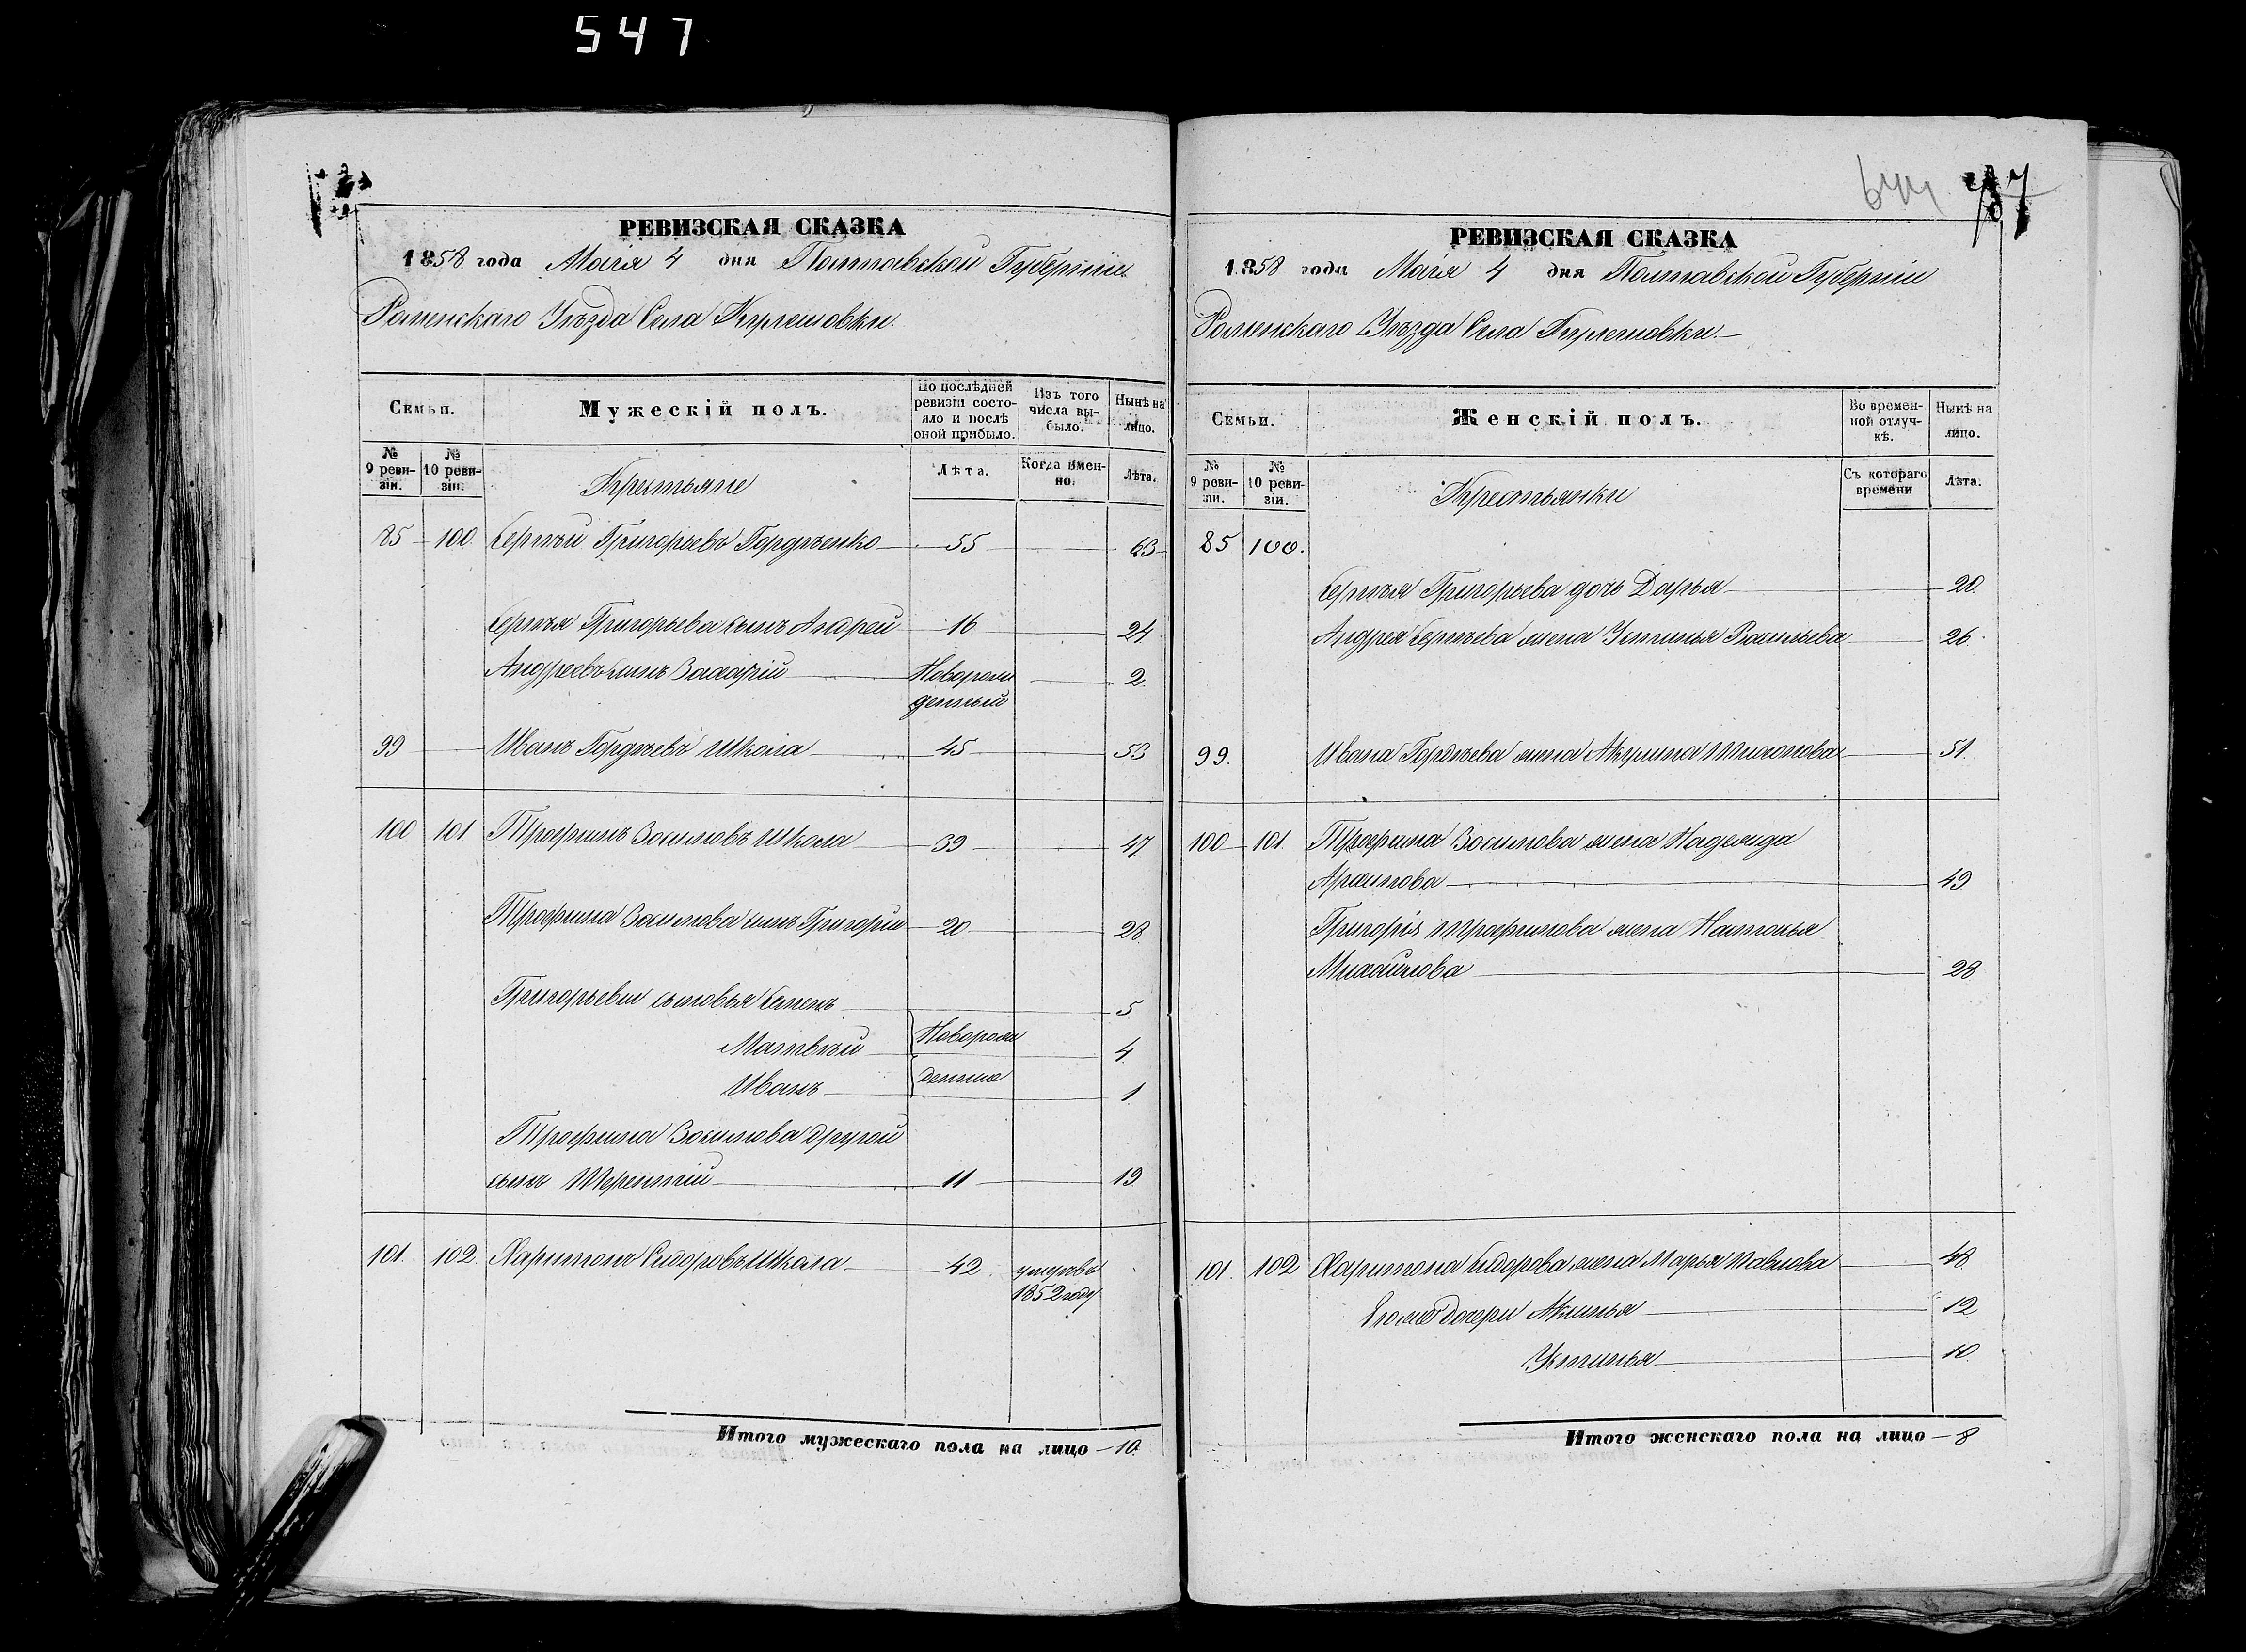 547
РЕВИЗСКАЯ СКАЗКА
1858 года Маія 4 дня Полтавской Губерніи
Роменскаго Уѣзда Села Кулешовки.
Семьи.
Мужескій полъ.
По послѣдней ревизіи состояло и послѣ оной прибыло.
Изъ того числа выбыло.
Нынѣ на лицо.
№ 9 ревизіи.
№ 10 ревизіи.
Крестьяне
Лѣта.
Когда именно.
Лѣта.
85 100. Сергѣй Григорьевъ Гордѣенко 55 63
Сергѣя Григорьева сынъ Андрей 16 24
Андреевъ сынъ Захарій Новорож 2.
денный
99 Иванъ Гордѣевъ Школа 45 53
100 101. Трофимъ Зосимовъ Школа 39 47
Трофима Зосимова сынъ Григорій 20 28
Григорьевы сыновья Семенъ 5
Матвѣй Новорож 4
Иванъ денные 1
Трофима Зосимова другой
сынъ Терентій 11 19
101. 102. Харитонъ Сидоровъ Школа 42 умеръ въ
1852 году
Итого мужескаго пола на лицо — 10.
644 87
РЕВИЗСКАЯ СКАЗКА
1858 года Маія 4 дня Полтавской Губерніи
Роменскаго Уѣзда Села Кулешовки.
Семьи.
Женскій полъ.
Во временной отлучкѣ.
Нынѣ на лицо.
№ 9 ревизіи.
№ 10 ревизіи.
Крестьянки
Съ котораго времени
Лѣта.
85 100.
Сергѣя Григорьева дочь Дарья 20.
Андрея Сергѣева жена Устинья Васильева 26.
99. Ивана Гордѣева жена Акулина Тихонова 51.
100 101. Трофима Зосимова жена Надежда
49
Григорія Трофимова жена Наталья
Михайлова 28
101. 102 Харитона Сидорова жена Марья Павлова 48
Его же дочери Аксинья 12
Устинья 10.
Итого женскаго пола на лицо — 8